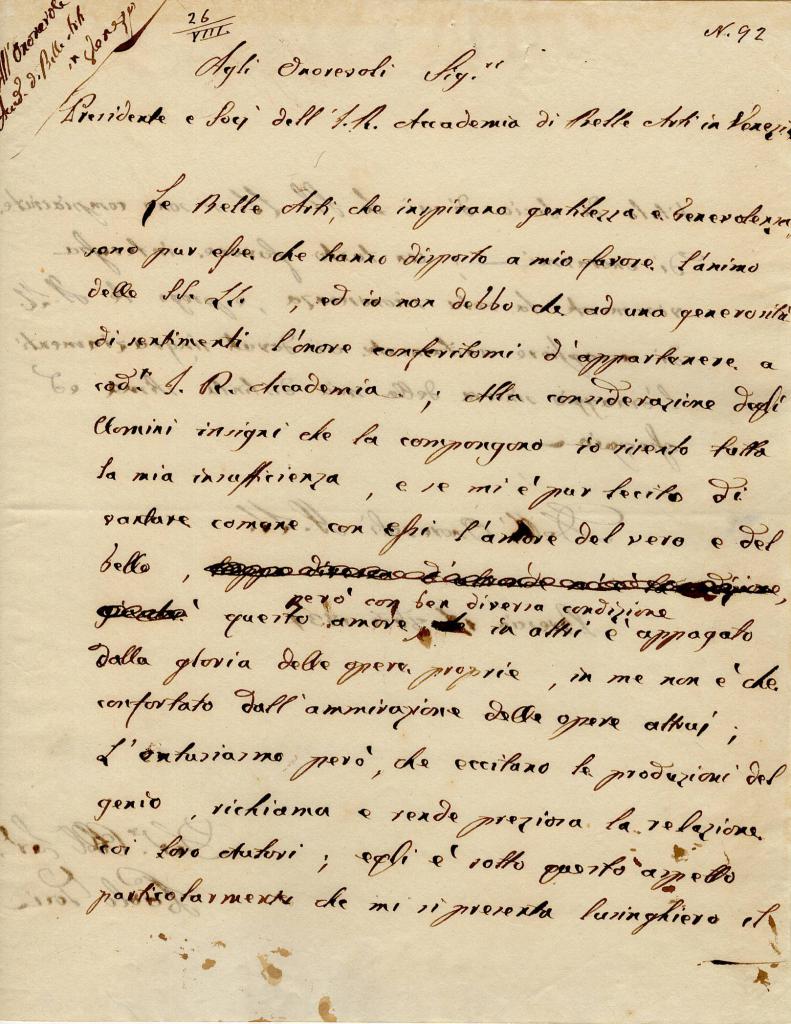 All' Onorevole
Accad. di Belle Arti
in Venezia
26
VIII
N. 92
Agli Onorevoli Sig.ri
Presidente e Socj dell' I. R. Accademia di Belle Arti in Venezia
Le Belle Arti, che inspirano gentilezza e benevolenza,
sono pur esse che hanno disposto a mio favore l'animo
delle SS. LL. , ed io non debbo che ad una generosità
di sentimenti l'onore conferitomi d'appartenere a
cod.ta I. R. Accademia ; Alla considerazione degli
Uomini insigni che la compongono io risento tutta
la mia insufficienza , e se mi è pur lecito di
vantare comune con essi l'amore del vero e del
bello ,
però con ben diversa condizione
questo amore in altri è appagato
dalla gloria delle opere proprie , in me non è che
confortato dall'ammirazione delle opere altrui ;
L'entusiasmo però, che eccitano le produzioni del
genio , richiama e rende preziosa la relazione
coi loro Autori ; egli è sotto questo aspetto
particolarmente che mi si presenta lusinghiero il